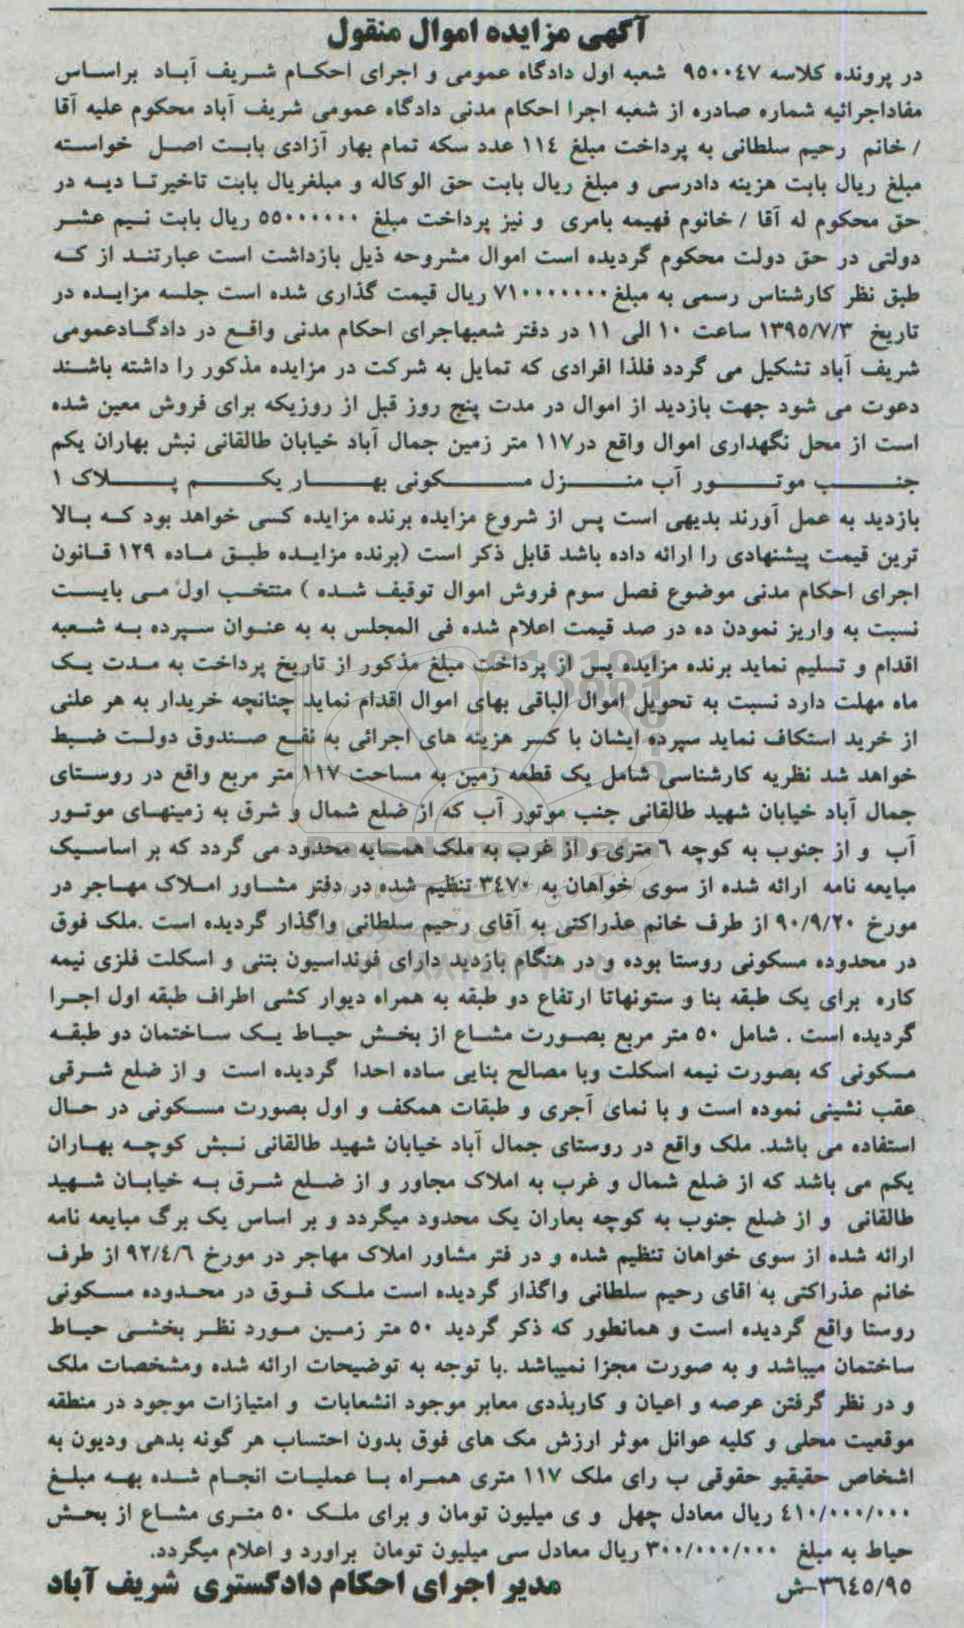 آگهی مزایده اموال منقول
در پرونده کلاسه ۹۵۰۰۴۷ شعبه اول دادگاه عمومی و اجرای احکام شریف آباد براساس
مفاداجرائیه شماره صادره از شعبه اجرا احکام مدنی دادگاه عمومی شریف آباد محکوم علیه آقا
/ خانم رحیم سلطانی به پرداخت مبلغ ۱۱۴ عدد سکه تمام بهار آزادی بابت اصل خواسته
مبلغ ریال بابت هزینه دادرسی و مبلغ ریال بابت حق الوکاله و مبلغریال بابت تاخیرتا دیه در
حق محکوم له آقا / خانوم فهیمه بامری و نیز پرداخت مبلغ ۵۵۰۰۰۰۰۰ ریال بابت نیم عشر
دولتی در حق دولت محکوم گردیده است اموال مشروحه ذیل بازداشت است عبارتند از که
طبق نظر کارشناس رسمی به مبلغ ۷۱۰۰۰۰۰۰۰ ریال قیمت گذاری شده است جلسه مزایده در
تاریخ ۱۳۹۵/۷/۳ ساعت ۱۰ الی ۱۱ در دفتر شعبهاجرای احکام مدنی واقع در دادگادعمومی
شریف آباد تشکیل می گردد فلذا افرادی که تمایل به شرکت در مزایده مذکور را داشته باشند
دعوت می شود جهت بازدید از اموال در مدت پنج روز قبل از روزیکه برای فروش معین شده
است از محل نگهداری اموال واقع در۱۱۷ متر زمین جمال آباد خیابان طالقانی نبش بهاران یکم
جنب موتور آب منزل مسکونی بهار یکم پلاک ۱
بازدید به عمل آورند بدیهی است پس از شروع مزایده برنده مزایده کسی خواهد بود که بالا
ترین قیمت پیشنهادی را ارائه داده باشد قابل ذکر است (برنده مزایده طبق ماده ۱۲۹ قانون
اجرای احکام مدنی موضوع فصل سوم فروش اموال توقیف شده ) منتخب اول می بایست
نسبت به واریز نمودن ده در صد قیمت اعلام شده فی المجلس به به عنوان سپرده به شعبه
اقدام و تسلیم نماید برنده مزایده پس از پرداخت مبلغ مذکور از تاریخ پرداخت به مدت یک
ماه مهلت دارد نسبت به تحویل اموال الباقی بهای اموال اقدام نماید چنانچه خریدار به هر علنی
از خرید استکاف نماید سپرده ایشان با کسر هزینه های اجرائی به نفع صندوق دولت ضبط
خواهد شد نظریه کارشناسی شامل یک قطعه زمین به مساحت ۱۱۷ متر مربع واقع در روستای
جمال آباد خیابان شهید طالقانی جنب موتور آب که از ضلع شمال و شرق به زمینهای موتور
آب و از جنوب به کوچه ۶ متری و از غرب به ملک همسایه محدود می گردد که بر اساسیک
مبایعه نامه ارائه شده از سوی خواهان به ۳۴۷۰ تنظیم شده در دفتر مشاور املاک مهاجر در
مورخ ۹۰/۹/۲۰ از طرف خانم عذراکتی به آقای رحیم سلطانی واگذار گردیده است .ملک فوق
در محدوده مسکونی روستا بوده و در هنگام بازدید دارای فونداسیون بتنی و اسکلت فلزی نیمه
کاره برای یک طبقه بنا و ستونهاتا ارتفاع دو طبقه به همراه دیوار کشی اطراف طبقه اول اجرا
گردیده است . شامل ۵۰ متر مربع بصورت مشاع از بخش حیاط یک ساختمان دو طبقه
مسکونی که بصورت نیمه اسکلت وبا مصالح بنایی ساده احدا گردیده است و از ضلع شرقی
عقب نشینی نموده است و با نمای آجری و طبقات همکف و اول بصورت مسکونی در حال
استفاده می باشد. ملک واقع در روستای جمال آباد خیابان شهید طالقانی نبش کوچه بهاران
یکم می باشد که از ضلع شمال و غرب به املاک مجاور و از ضلع شرق به خیابان شهید
طالقانی و از ضلع جنوب به کوچه بعاران یک محدود میگردد و بر اساس یک برگ مبایعه نامه
ارائه شده از سوی خواهان تنظیم شده و در فتر مشاور املاک مهاجر در مورخ ۹۲/۴/۶ از طرف
خانم عذراکتی به اقای رحیم سلطانی واگذار گردیده است ملک فوق در محدوده مسکونی
روستا واقع گردیده است و همانطور که ذکر گردید ۵۰ متر زمین مورد نظر بخشی حیاط
ساختمان میباشد و به صورت مجزا نمیباشد .با توجه به توضیحات ارائه شده ومشخصات ملک
و در نظر گرفتن عرصه و اعیان و کاربذدی معابر موجود انشعابات و امتیازات موجود در منطقه
موقعیت محلی و کلیه عوانل موثر ارزش مک های فوق بدون احتساب هر گونه بدهی ودیون به
اشخاص حقیقیو حقوقی ب رای ملک ۱۱۷ متری همراه با عملیات انجام شده بهه مبلغ
۴۱۰/۰۰۰/۰۰۰ ریال معادل چهل و ی میلیون تومان و برای ملک ۵۰ متری مشاع از بحش
حیاط به مبلغ ۳۰۰/۰۰۰/۰۰۰ ریال معادل سی میلیون تومان براورد و اعلام میگردد.
۳۶۴۵/۹۵-ش
مدیر اجرای احکام دادگستری شریف آباد